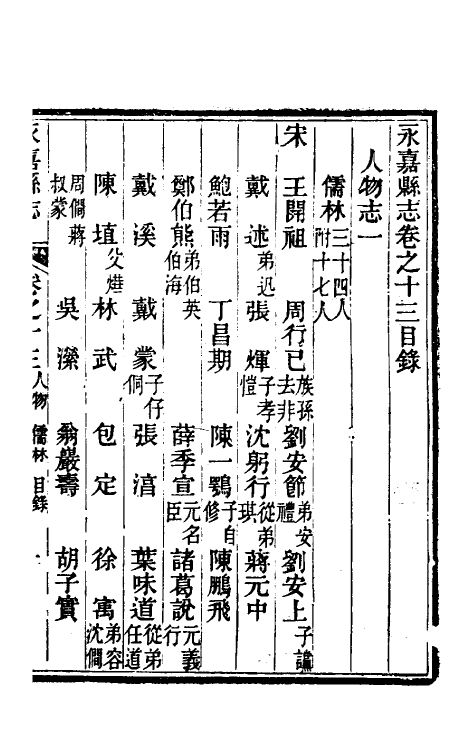 永嘉縣志卷之十三目錄
人物志一
儒林三十四人附十七人
宋 王開祖 周行己族孫去非 劉安節弟安禮 劉安上子
戴述弟迅 張煇子孝愷 沈躬行從弟琪 蔣元中
鮑若雨 丁昌期 陳一鶚子自修 陳鵬飛
鄭伯熊弟伯英伯海 薛季宣元名臣 諸葛說元義行
戴溪 戴蒙子仔侗 張淯 葉味道從弟任道
陳埴父燁 林武 包定 徐㝢弟容沈僩
周僩蔣叔蒙 吳濚 翁巖壽 胡子實
永嘉縣志 卷之十三 人物 儒林 目錄 一